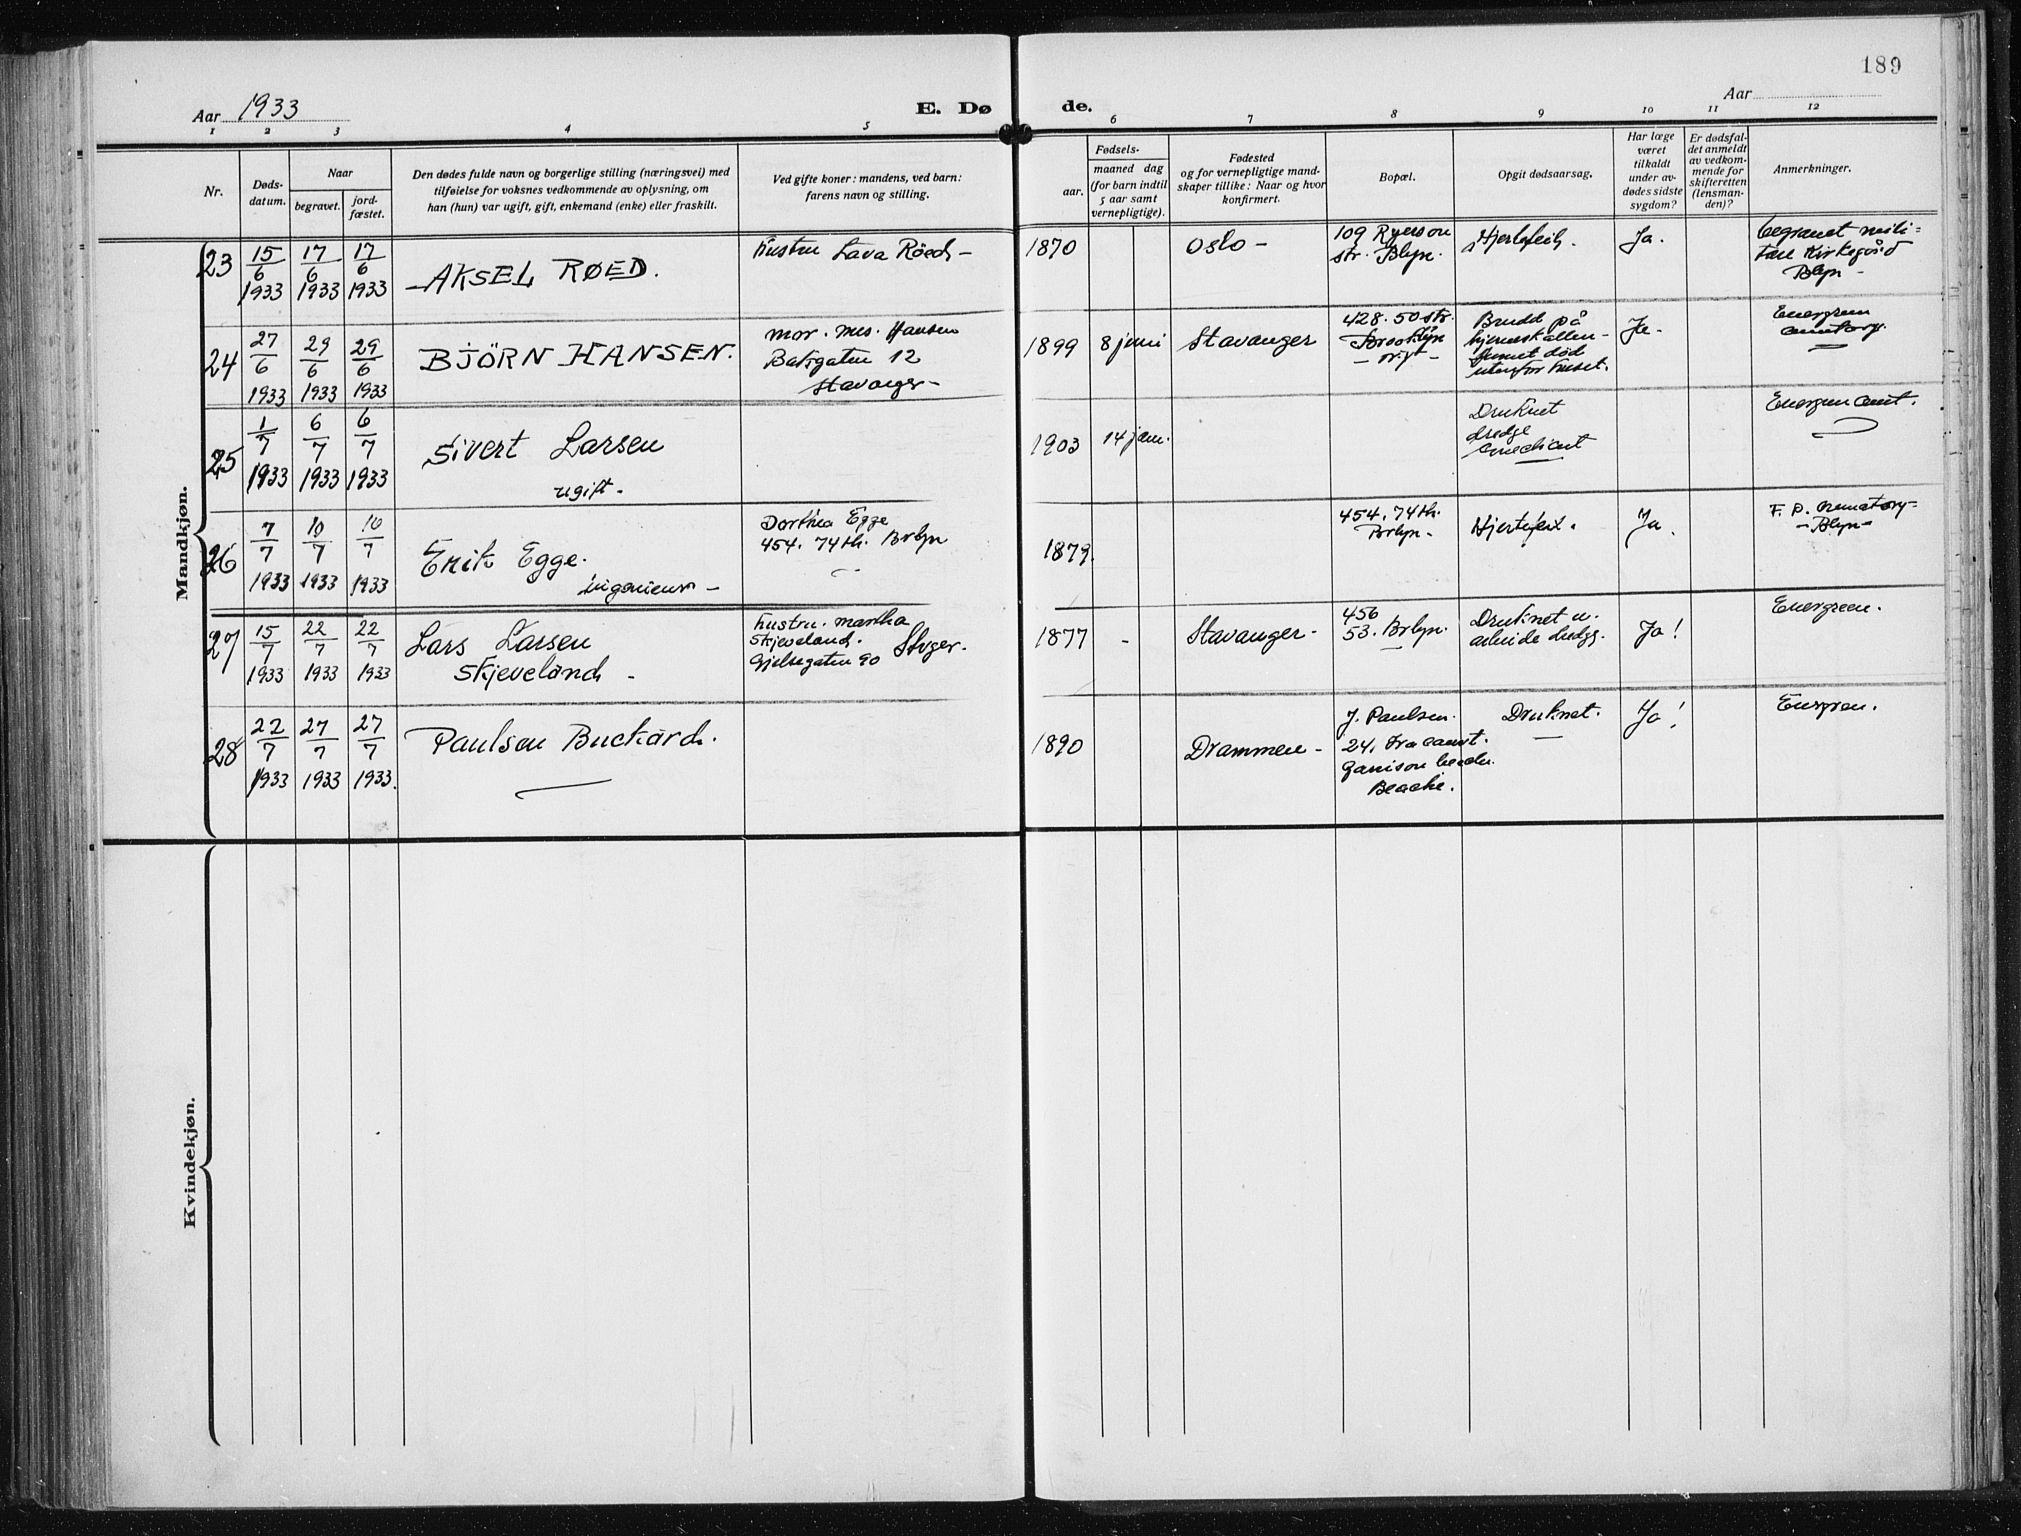 189
Aar 1933
E. Dø
de.
Aar
1 2 3 4 5 6 7 8 9 10 11 12
Nr.
Døds-
datum.
Naar
begravet.
jord-
fæstet.
Den dødes fulde navn og borgerlige stilling (næringsvei) med
tilføielse for voksnes vedkommende av oplysning, om
han (hun) var ugift, gift, enkemand (enke) eller fraskilt.
Ved gifte koner: mandens, ved barn:
farens navn og stilling.
Fødsels-
aar.
maaned dag
(for barn indtil
5 aar samt
vernepligtige).
Fødested
og for vernepligtige mand-
skaper tillike: Naar og hvor
konfirmert.
Bopæl.
Opgit dødsaarsag.
Har læge
været
tilkaldt
under av-
dødes sidste
sygdom?
Er dødsfal-
det anmeldt
av vedkom-
mende for
skifteretten
(lensman-
den)?
Anmerkninger.
Mandkjøn.
23
15/6 1933
17/6 1933
17/6 1933
AKSEL RØED.
hustru Lava Röed -
1870
Oslo -
109 Ryerson
str. Blyn.
Hjertefeil.
Ja.
begravet mili-
tære Kirkegård
Blyn -
24
27/6 1933
29/6 1933
29/6 1933
BJÖRN HANSEN.
mor. mrs. Hansen
Baksgaten 12
Stavanger -
1899
8 juni
Stavanger
428. 50 str.
Brooklyn
Brudd på
hjerneskallen -
funnet død
utenfor huset.
Ja.
Evergreen
25
1/7 1933
6/7 1933
6/7 1933
Sivert Larsen
ugift -
1903
14 jan.
Druknet
dredge
Evergreen Cemt.
26
7/7 1933
10/7 1933
10/7 1933
Erik Egge.
ingeniør -
Dorthea Egge
454. 74th. Brlyn
1879.
454. 74th.
Brlyn -
Hjertefeil.
Ja.
F. P. Crematory -
- Blyn -
27
15/7 1933
22/7 1933
22/7 1933
Lars Larsen
Skjeveland -
hustru. Martha
Skjeveland.
Gjelsegaten 90 Stvger.
1877
-
Stavanger -
456
53. Brlyn.
Druknet u.
arbeide dredg.
Ja!
Evergreen.
28
22/7 1933
27/7 1933
27/7 1933.
Paulsen Buckard.
1890
Drammen -
J. Paulsen.
24.
Beache.
Druknet.
Ja!
Evergreen.
Kvindekjøn.